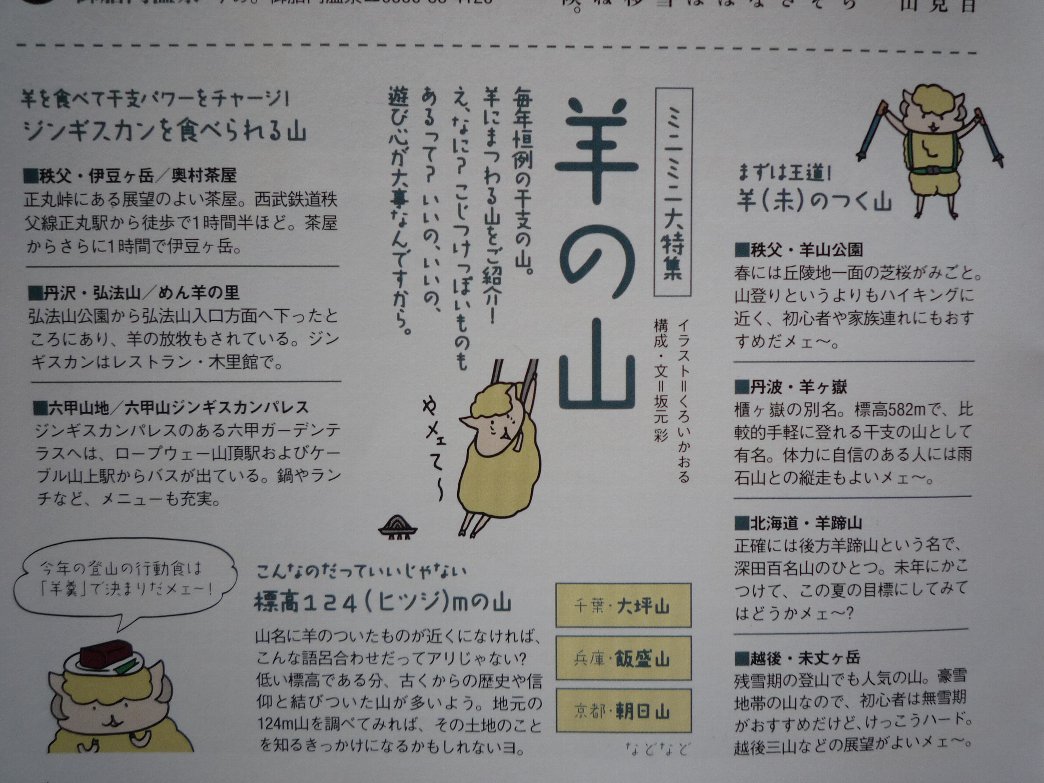 ミニミニ大特集
羊の山
イラスト＝くろいかおる
構成・文＝坂元 彩
毎年恒例の干支の山。
羊にまつわる山をご紹介！
え、なに？こじつけっぽいものも
あるって？いいの、いいの、
遊び心が大事なんですから。
やメェて〜
まずは王道！
羊（未）のつく山
■秩父・羊山公園
春には丘陵地一面の芝桜がみごと。
山登りというよりもハイキングに
近く、初心者や家族連れにもおす
すめだメェ〜。
■丹波・羊ヶ嶽
櫃ヶ嶽の別名。標高582mで、比
較的手軽に登れる干支の山として
有名。体力に自信のある人には雨
石山との縦走もよいメェ〜。
■北海道・羊蹄山
正確には後方羊蹄山という名で、
深田百名山のひとつ。未年にかこ
つけて、この夏の目標にしてみて
はどうかメェ〜?
■越後・未丈ヶ岳
残雪期の登山でも人気の山。豪雪
地帯の山なので、初心者は無雪期
がおすすめだけど、けっこうハード。
越後三山などの展望がよいメェ〜。
羊を食べて干支パワーをチャージ！
ジンギスカンを食べられる山
■秩父・伊豆ヶ岳／奥村茶屋
正丸峠にある展望のよい茶屋。西武鉄道秩
父線正丸駅から徒歩で1時間半ほど。茶屋
からさらに1時間で伊豆ヶ岳。
■丹沢・弘法山／めん羊の里
弘法山公園から弘法山入口方面へ下ったと
ころにあり、羊の放牧もされている。ジン
ギスカンはレストラン・木里館で。
■六甲山地／六甲山ジンギスカンパレス
ジンギスカンパレスのある六甲ガーデンテ
ラスへは、ロープウェー山頂駅およびケー
ブル山上駅からバスが出ている。鍋やラン
チなど、メニューも充実。
今年の登山の行動食は
「羊羹」で決まりだメェ〜！
こんなのだっていいじゃない
標高124（ヒツジ）mの山
山名に羊のついたものが近くになければ、
こんな語呂合わせだってアリじゃない?
低い標高である分、古くからの歴史や信
仰と結びついた山が多いよう。地元の
124m山を調べてみれば、その土地のこと
を知るきっかけになるかもしれないヨ。
千葉・大坪山
兵庫・飯盛山
京都・朝日山
などなど